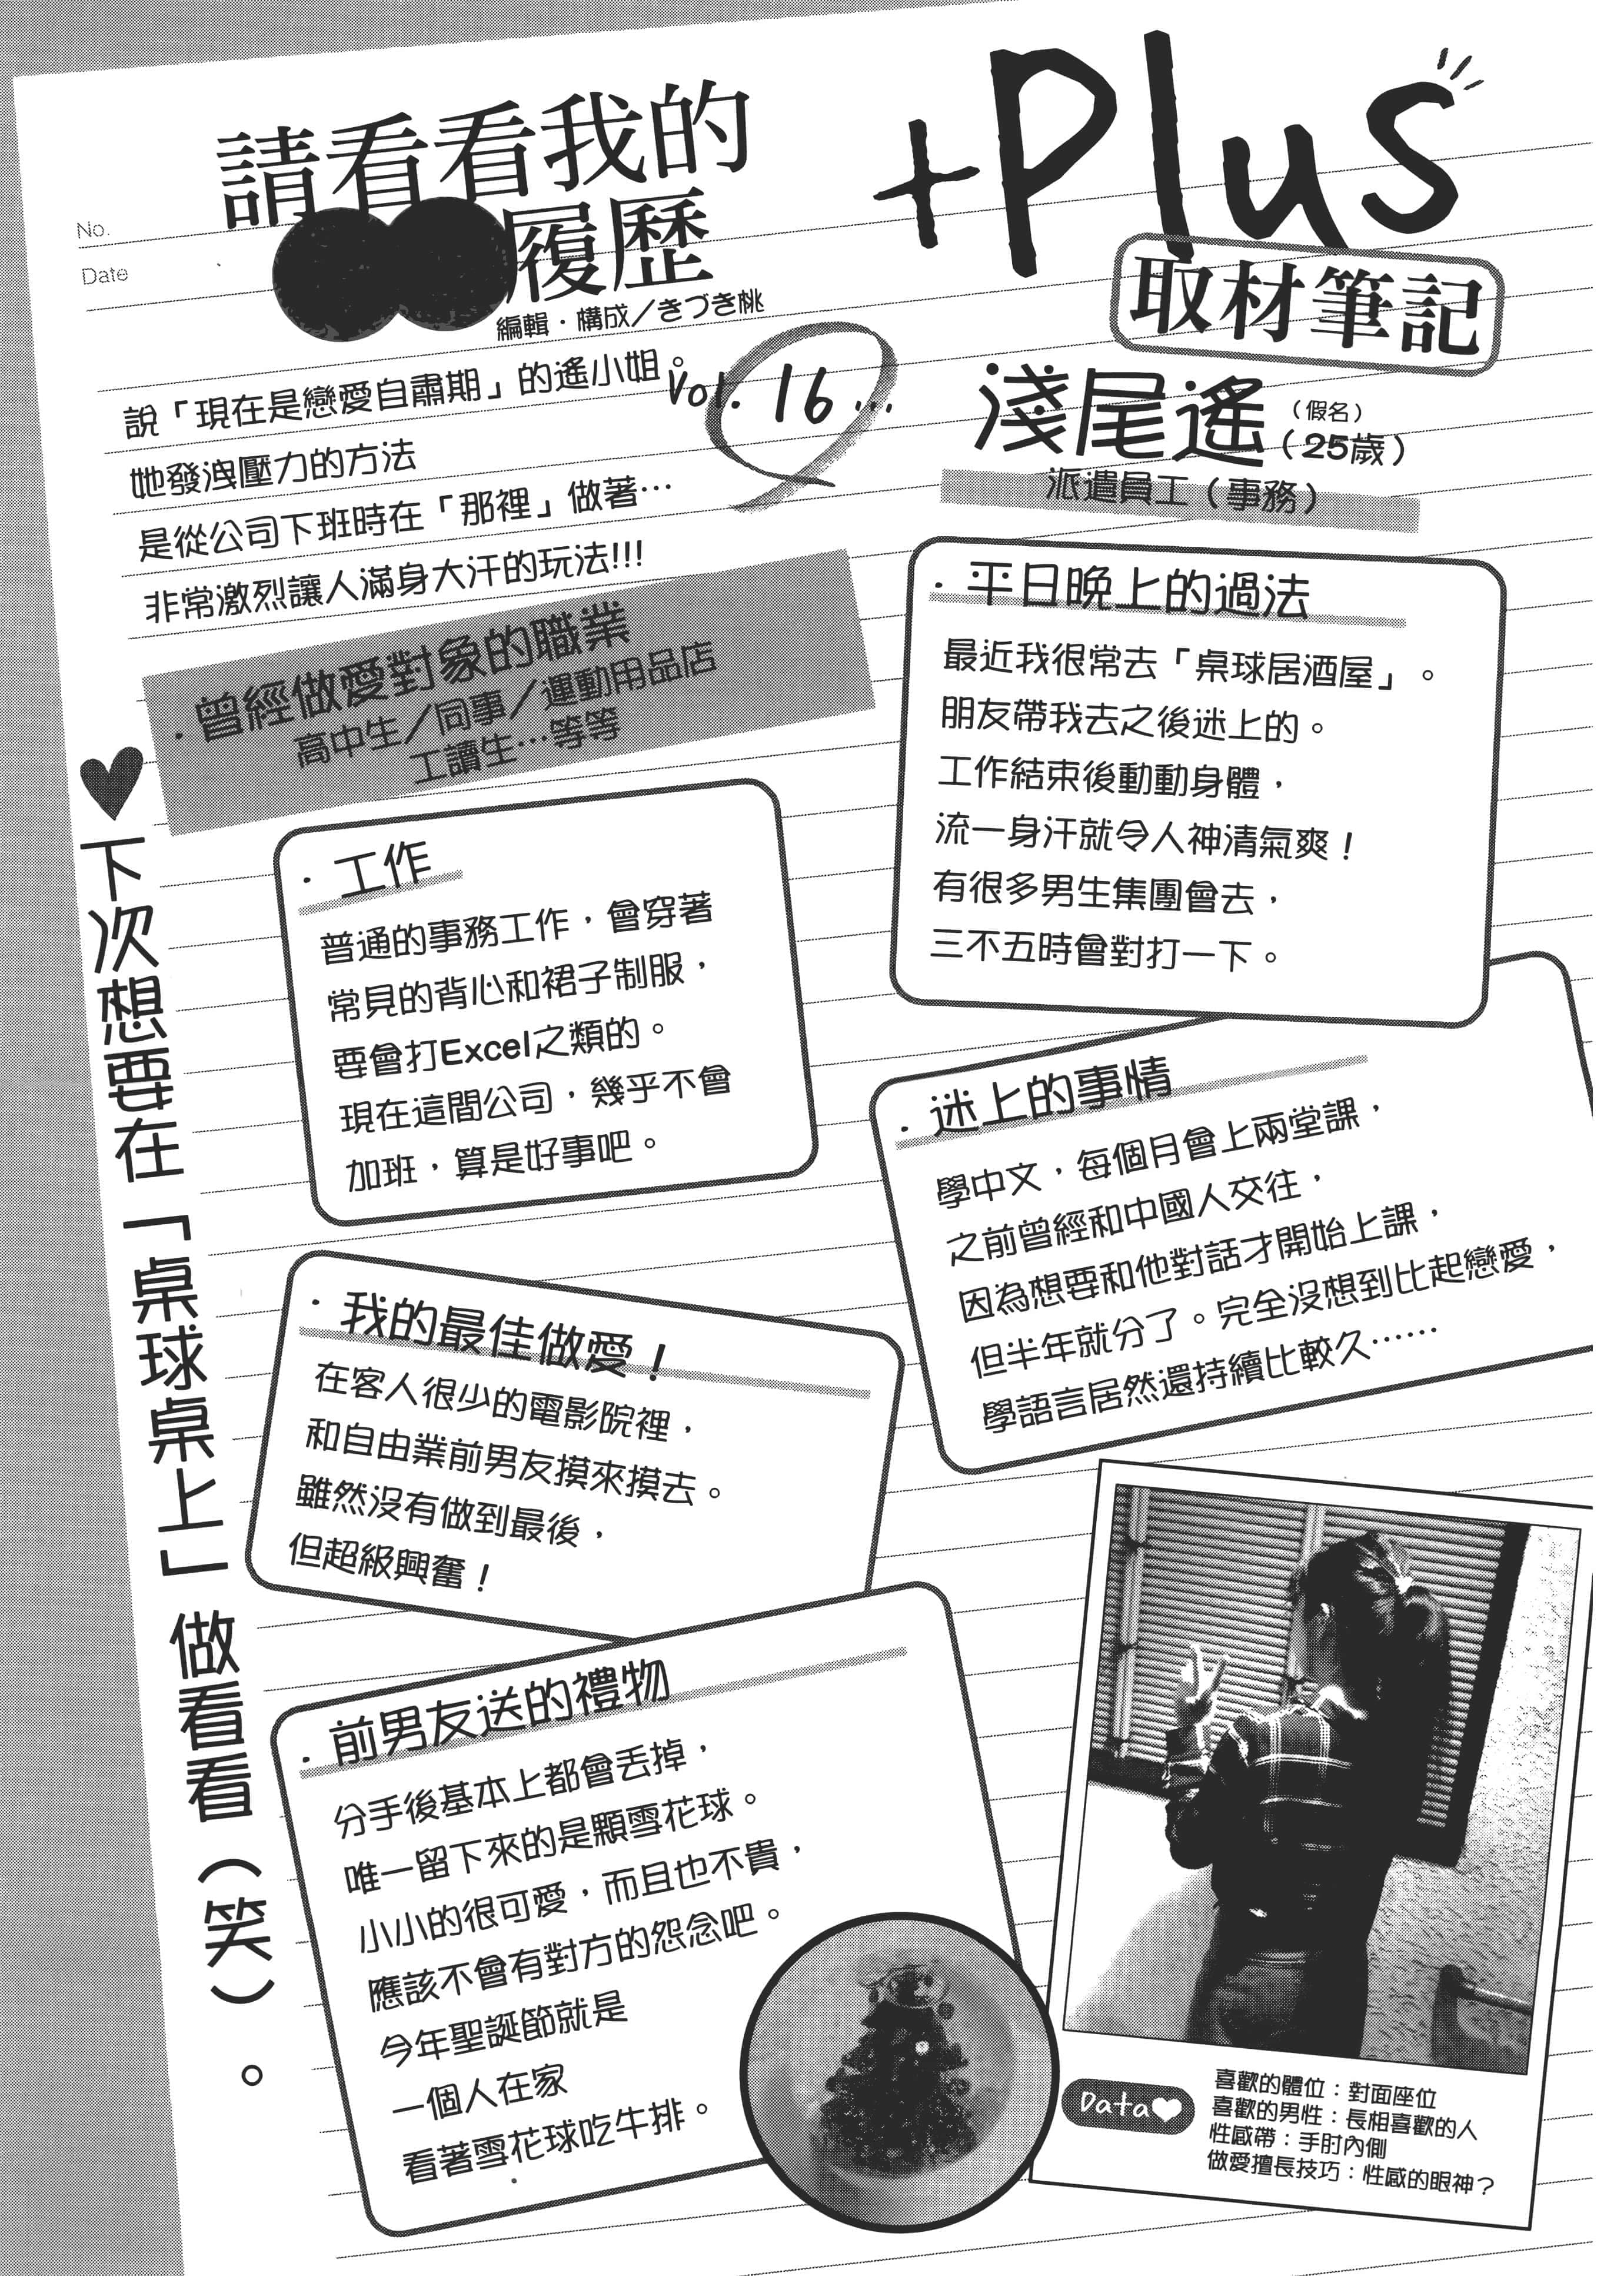 No.
Date
請看看我的
履歷
編輯・構成／きづき桃
+Plus
取材筆記
Vol. 16…
淺尾遙（假名）
（25歲）
派遣員工（事務）
說「現在是戀愛自肅期」的遙小姐。
她發洩壓力的方法
是從公司下班時在「那裡」做著…
非常激烈讓人滿身大汗的玩法!!!
・曾經做愛對象的職業
高中生／同事／運動用品店
工讀生…等等
・平日晚上的過法
最近我很常去「桌球居酒屋」。
朋友帶我去之後迷上的。
工作結束後動動身體，
流一身汗就令人神清氣爽！
有很多男生集團會去，
三不五時會對打一下。
・工作
普通的事務工作，會穿著
常見的背心和裙子制服，
要會打Excel之類的。
現在這間公司，幾乎不會
加班，算是好事吧。
・迷上的事情
學中文，每個月會上兩堂課，
之前曾經和中國人交往，
因為想要和他對話才開始上課，
但半年就分了。完全沒想到比起戀愛，
學語言居然還持續比較久……
・我的最佳做愛！
在客人很少的電影院裡，
和自由業前男友摸來摸去。
雖然沒有做到最後，
但超級興奮！
・前男友送的禮物
分手後基本上都會丟掉，
唯一留下來的是顆雪花球。
小小的很可愛，而且也不貴，
應該不會有對方的怨念吧。
今年聖誕節就是
一個人在家
看著雪花球吃牛排。
♥下次想要在「桌球桌上」做看看（笑）。
Data♥
喜歡的體位：對面座位
喜歡的男性：長相喜歡的人
性感帶：手肘內側
做愛擅長技巧：性感的眼神？